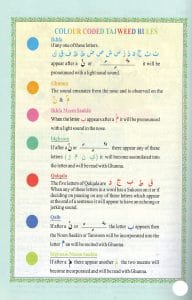 COLOUR CODED TAJWEED RULES
Ikhfa
If any one of these letters.
ت ث ج د ذ ز س ش ص ض ط ظ ف ق ک
appear after a ن or it will be
pronounced with a light nasal sound.
Ghunna
The sound emanates from the nose and is observed on the
Ikhfa Meem Saakin
When the letter ب appears after a م it will be pronounced
with a light sound in the nose.
Idghaam
If after a ن or there appear any of these
letters ( ی ن م و ) it will become assimilated into
the letters and will be read with Ghunna.
Qalqala
The five letters of Qalqala are ق ط ب ج د
When any of these letters in a word has a Sukoon on it or if
deciding on pausing on any of these letters which appear
at the end of a sentence it will appear to have an echoing or
jerking sound.
Qalb
If after a ن or the letter ب appears then
the Noon Saakin or Tanween will be incorporated into the
letter م an will be recited with Ghunna.
Idghaam Meem Saakin
If after a م there appear another م the two meems will
become incorporated and will be read with Ghunna.